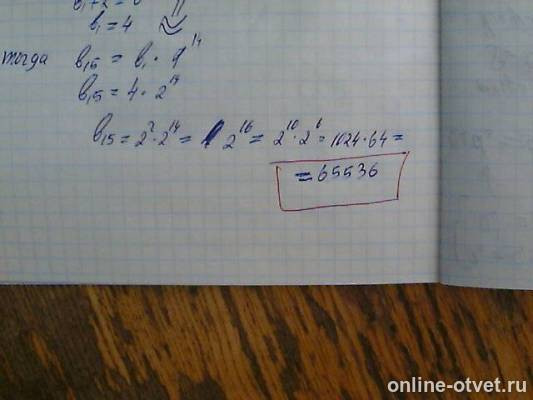 b₁ = 4
тогда b₁₅ = b₁ · q¹⁴
b₁₅ = 4 · 2¹⁴
b₁₅ = 2² · 2¹⁴ = 2¹⁶ = 2¹⁰ · 2⁶ = 1024 · 64 =
= 65536
online-otvet.ru